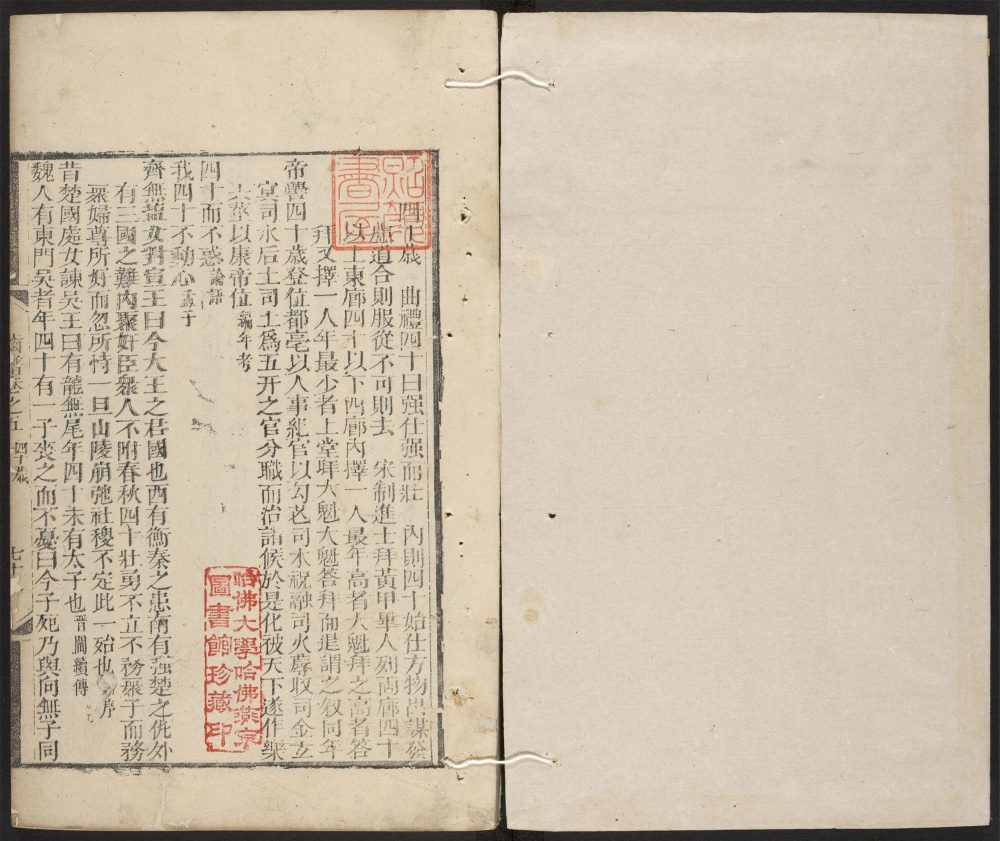 四十歲 曲禮四十曰强仕强而壯 內則四十始仕方物出謀發
慮道合則服從不可則去 宋制進士拜黃甲畢人列兩廊四十
以上東廊四十以下西廊內擇一人最年高者大魁拜之高者答
拜又擇一人年最少者上堂拜大魁大魁答拜而退謂之敘同年
帝嚳四十歲登位都亳以人事紀官以勾芒司木祝融司火蓐收司金玄
冥司水后土司土爲五行之官分職而治諸候於是化被天下遂作樂
六莖以康帝位編年考
四十而不惑論語
我四十不動心孟子
齊無鹽女對宣王曰今大王之君國也西有衡秦之患南有强楚之仇外
有三國之難內聚奸臣衆人不附春秋四十壯勇不立不務衆子而務
衆婦尊所好而忽所恃一旦山陵崩弛社稷不定此一殆也 序
昔楚國處女諫吳王曰有龍無尾年四十未有太子也 闕續傳
魏人有東門吳者年四十有一子喪之而不憂曰今子死乃與向無子同
卷之五 四十歲 七十
哈佛大學哈佛燕京
圖書館珍藏印